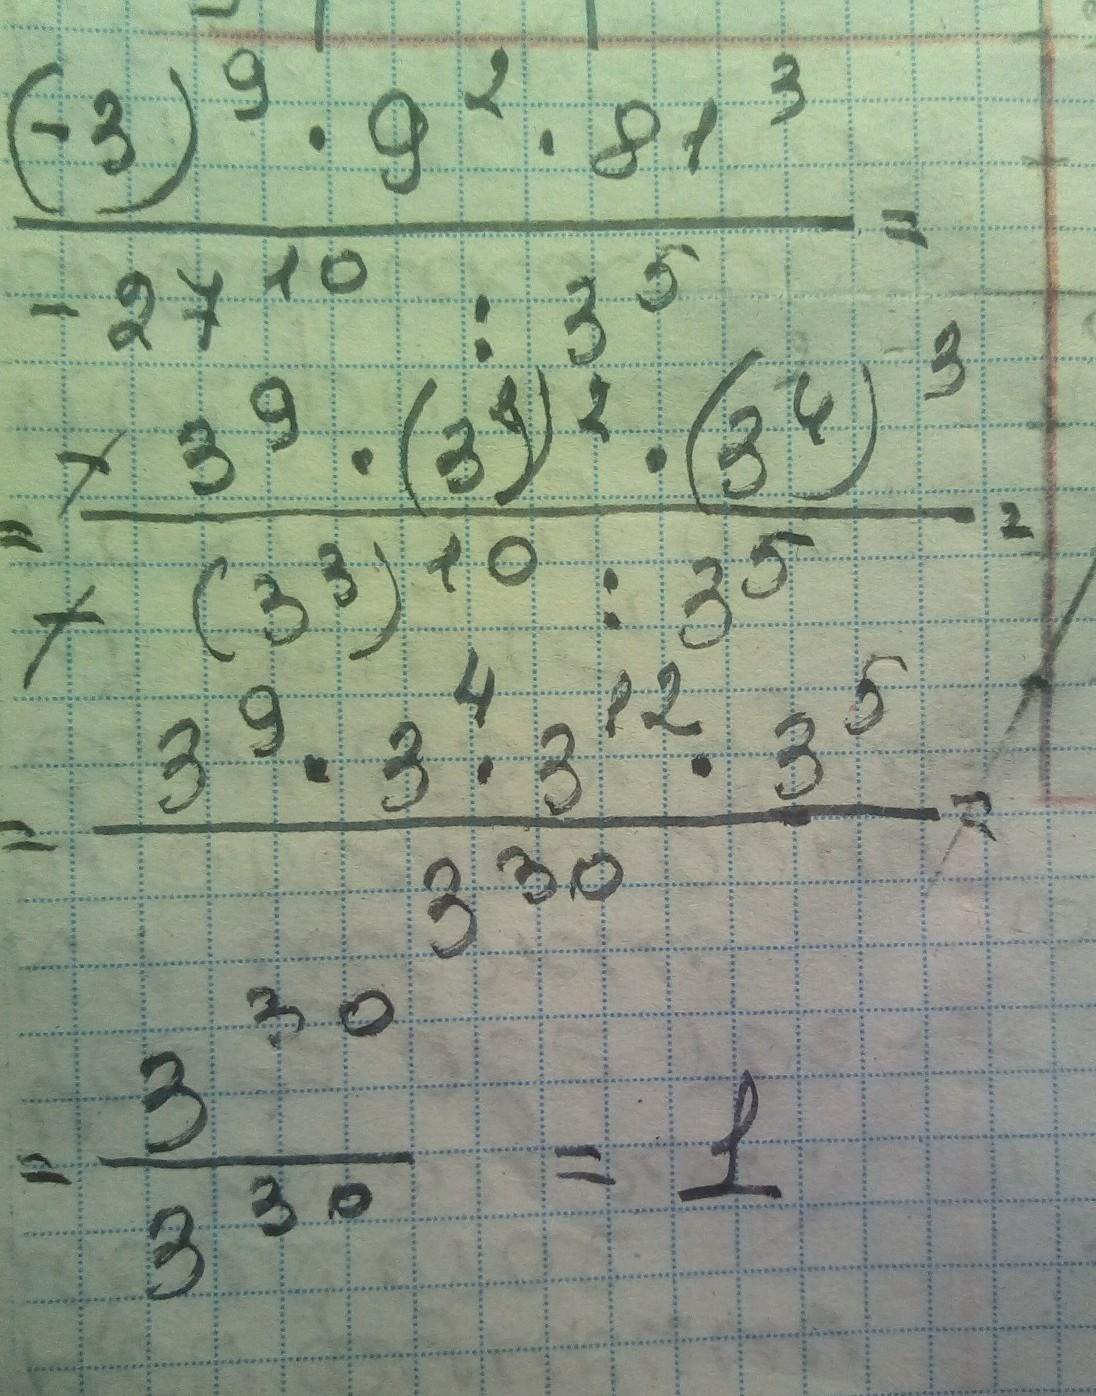 (-3)^9 · 9^2 · 81^3 =
-27^10 : 3^5
- 3^9 · (3^2)^2 · (3^4)^3
= =
- (3^3)^10 : 3^5
3^9 · 3^4 · 3^12 · 3^5
= =
3^30
3^30
= = 1
3^30